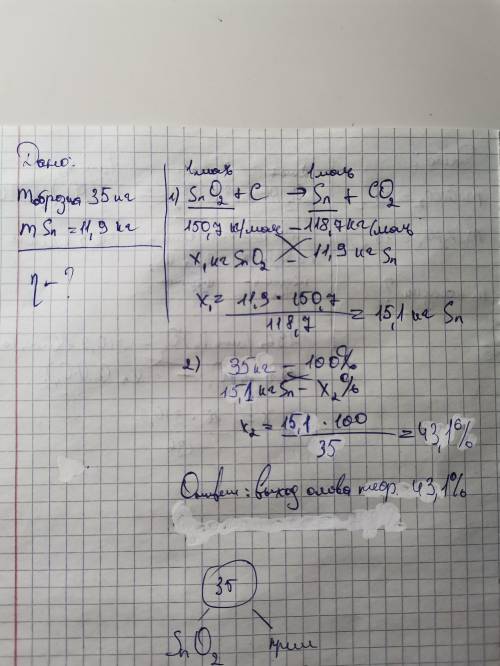 Дано:
m образца 35 кг
m Sn = 11,9 кг
η - ?
1 моль 1 моль
1) SnO2 + C → Sn + CO2
150,7 кг/моль - 118,7 кг/моль
x1 кг SnO2 - 11,9 кг Sn
x1 = 11,9 · 150,7 / 118,7 = 15,1 кг Sn
2) 35 кг - 100%
15,1 кг Sn - x2 %
x2 = 15,1 · 100 / 35 = 43,1%
Ответ: выход олова теор. 43,1%
35
SnO2 прим